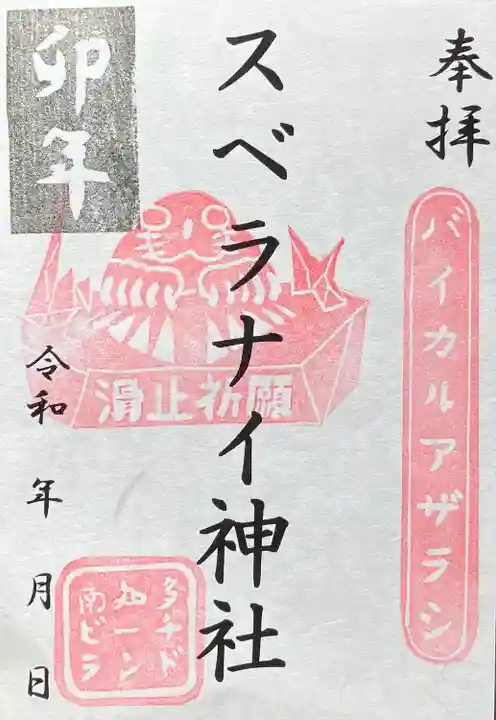 奉拝
バイカルアザラシ
スベラナイ神社
滑止祈願
卯年
令和 年 月 日
南ビラ